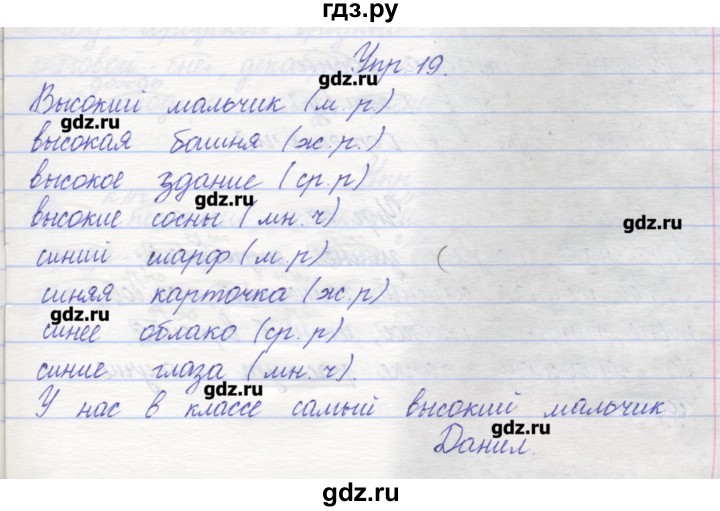 гдз.ру
Упр 19.
gdz.ru
Высокий мальчик (м.р.)
gdz.ru
высокая башня (ж.р.)
высокое здание (ср.р)
gdz.ru
высокие сосны (мн.ч)
gdz.ru
синий шарф (м.р) (
синяя карточка (ж.р)
gdz.ru
синее облако (ср.р)
синие глаза (мн.ч)
gdz.ru
У нас в классе самый высокий мальчик
gdz.ru
Данил.
gdz.ru